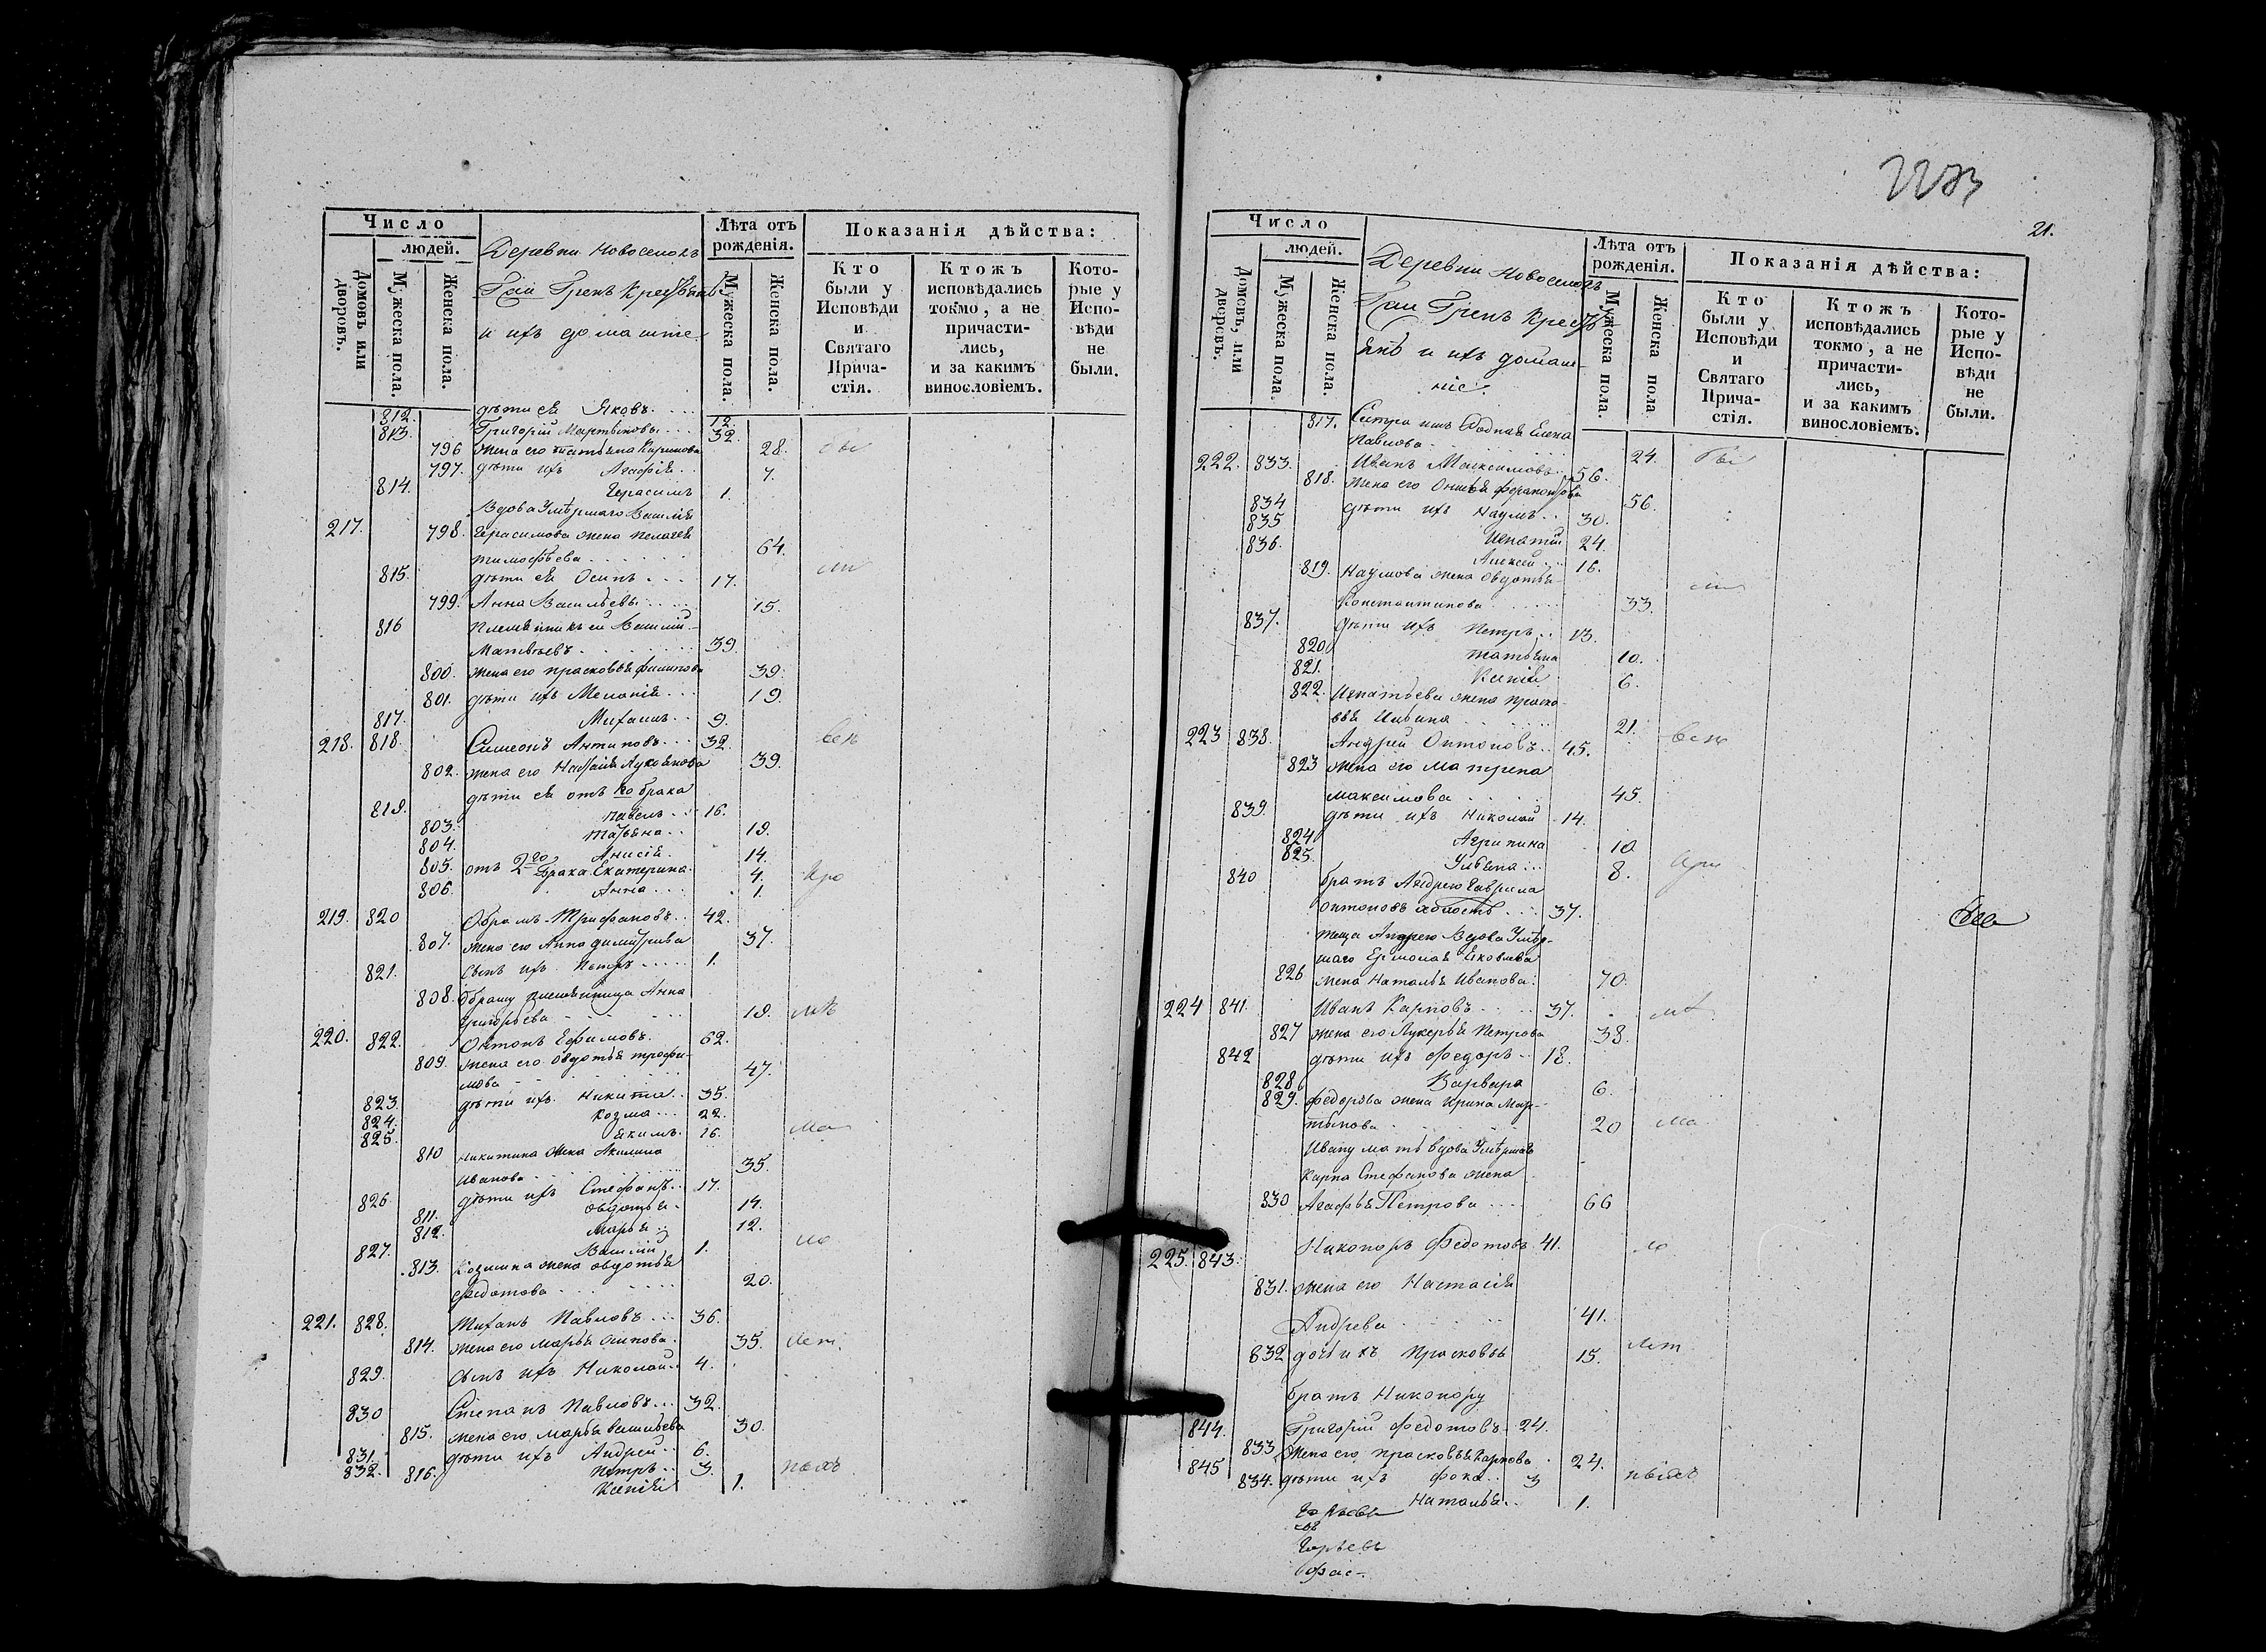 Число
людей.
Домовъ или дворовъ.
Мужеска пола.
Женска пола.
Деревни Новоселокъ
и ихъ домашніе
Лѣта отъ рожденія.
Мужеска пола.
Женска пола.
Показанія дѣйства:
Кто были у Исповѣди и Святаго Прича-стія.
Ктожъ исповѣдались токмо, а не причасти-лись, и за какимъ винословіемъ.
Кото-рые у Испо-вѣди не были.
812. дѣти ея Яковъ 12.
813. Григорій Мартыновъ 32.
796 жена его Татьяна 28.
797. дѣти ихъ Агафія 7.
814. Герасимъ 1.
Вдова Умѣршаго Василія
217. 798. Герасимова жена Пелагея
Тимофѣева 64.
815. дѣти ея Осипъ 17.
799. Анна Васильевы 15.
816 Племянникъ ей Василій
Матвѣевъ 39.
800. жена его Прасковья Филипова 39.
801. дѣти ихъ Меланія 19.
817. Михаилъ 9.
218. 818. Симеонъ Антиповъ 32.
802. жена его Лукьянова 39.
дѣти ея отъ 1го брака
819. Павелъ 16.
803. Татьяна 19.
804. Анисія 14.
805. отъ 2го брака Екатерина 4.
806. Анна 1.
219. 820 Абрамъ Трифановъ 42.
807. жена его Анна Димитріева 37.
821. сынъ ихъ Петръ 1.
808. Абраму племянница Анна
Григорьева 19.
220. 822. Антонъ Ефимовъ 62.
809. жена его Овдотья Трофи-
мова 47.
823. дѣти ихъ Никита 35.
824. Козма 22.
825. Якимъ 16.
810 Никитина жена Акилина
Иванова 35.
826. дѣти ихъ Стефанъ 17.
811. Овдотья 14.
812. Марья 12.
827. Василій 1.
813. Козмина жена Овдотья
Федотова 20.
221. 828. Павловъ 36.
814. жена его Марья Осипова 35.
829. сынъ ихъ Николай 4.
830 Степанъ Павловъ 32.
815. жена его Марья Васильева 30.
831. дѣти ихъ Андрей 6.
832. Петръ 3.
816. Ксенія 1.
21.
Число
людей.
Домовъ, или дворовъ.
Мужеска пола.
Женска пола.
Деревни Новоселокъ
и ихъ домаш-
ніе.
Лѣта отъ рожденія.
Мужеска пола.
Женска пола
Показанія дѣйства:
Кто были у Исповѣди и Святаго Прича-стія.
Ктожъ исповѣдались токмо, а не причасти-лись, и за какимъ винословіемъ.
Кото-рые у Испо-вѣди не были.
817. Сестра имъ Елена
Павлова 24.
222. 833. Иванъ Максимовъ 56.
818. жена его 56.
834 дѣти ихъ Наумъ 30.
835 Игнатій 24.
836. Алексей 16.
819. Наумова жена Овдотья
Константинова 33.
837. дѣти ихъ Петръ 13.
820. Татьяна 10.
821. Ксенія 6.
822. Игнатьева жена Праско-
вья Ильина 21.
223 838. Андрей Онтоновъ 45.
823 жена его Матрена
Максимова 45.
839. дѣти ихъ Николай 14.
824. Агрипина 10
825. Ульяна 8.
840 братъ Андрею Гаврила
Онтоновъ холостъ 37.
теща Андрею Вдова Умѣр-
шаго Ермолая Яковлева
826 жена Наталья Иванова 70.
224 841. Иванъ Карповъ 37.
827 жена его Лукерья Петрова 38.
842 дѣти ихъ Федоръ 18.
828 Варвара 6.
829. Федорова жена Ирина Мар-
тынова 20
Ивану мать вдова Умѣршаго
Карпа Стефанова жена
830 Агафья Петрова 66
225. 843. Никоноръ Федотовъ 41.
831. жена его Настасія
Андрева 41.
832 дочь ихъ Прасковья 15.
братъ Никонору
844. Григорій Федотовъ 24.
833 жена его Прасковья Карпова 24.
845 дѣти ихъ Фока 3
834. Наталья 1.